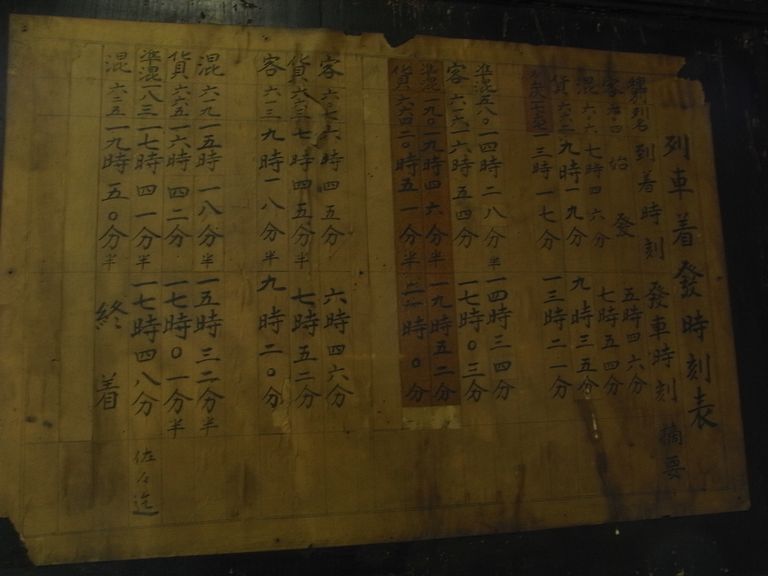 列車着發時刻表
種別列名 到着時刻 發車時刻 摘要
客六〇四 始發 五時四六分
混六〇六 七時四六分 七時五四分
貨六六二 九時一九分 九時三五分
一三時一七分 一三時二一分
準混五八〇 一四時二八分半 一四時三四分
客六一六 一六時五四分 一七時〇三分
準混一九〇 一九時四六分半 一九時五二分
貨六六四 二〇時五一分半 時〇分
客六〇七 六時四五分 六時四六分
貨六六三 七時四五分半 七時五二分
客六一三 九時一八分半 九時二〇分
混六一九 一五時一八分半 一五時三二分半
貨六六五 一六時四二分 一七時〇一分半
準混一八三 一七時四一分半 一七時四八分 佐々迄
混六二五 一九時五〇分半 終着